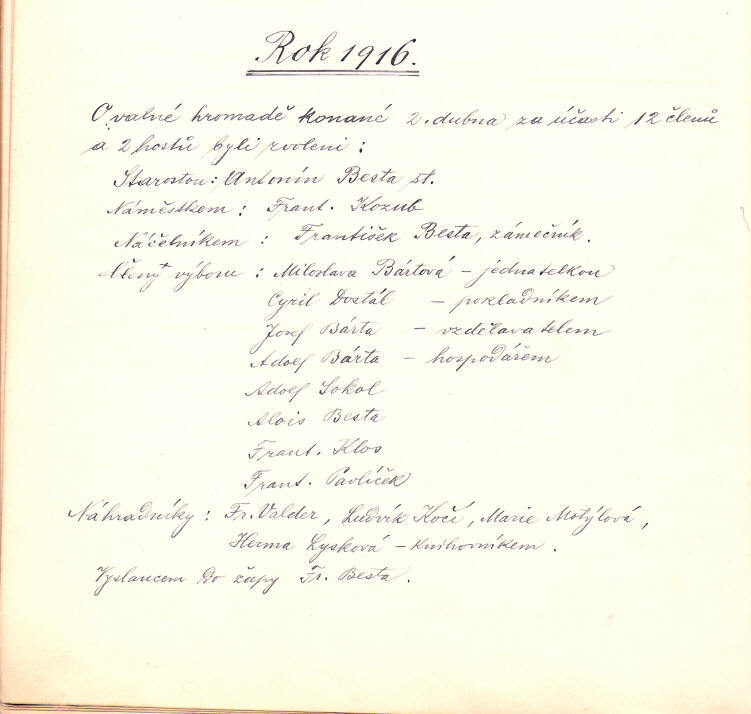 Rok 1916.
O valné hromadě konané 2. dubna za účasti 12 členů
a 2 hostů byli zvoleni:
Starostou: Antonín Besta st.
Náměstkem: Frant. Kozub
Náčelníkem: František Besta, zámečník.
Členy výboru: Miloslava Bártová - jednatelkou
Cyril Dostál - pokladníkem
Josef Bárta - vzdělavatelem
Adolf Bárta - hospodářem
Adolf Sokol
Alois Besta
Frant. Klos
Frant. Pavlíček
Náhradníky: Fr. Valder, Ludvík Kočí, Marie Motýlová,
Herma Lysková - knihovníkem.
Vyslancem do župy Fr. Besta.